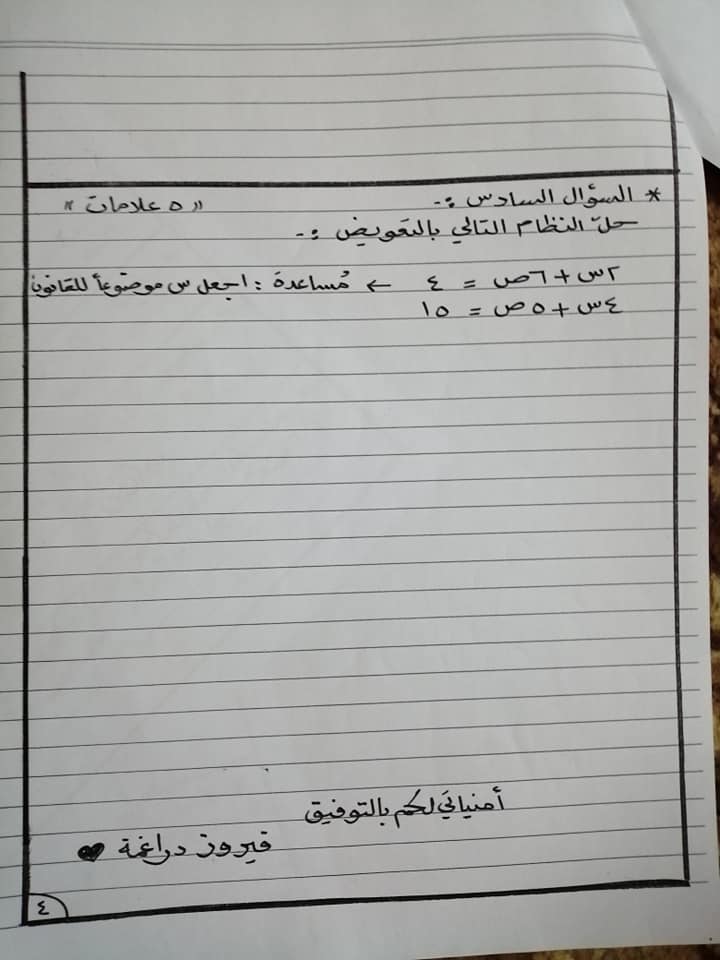 * السؤال السادس :- « ٥ علامات »
حلّ النظام التالي بالتعويض :-
٢س + ٦ص = ٤ ← مُساعدة : اجعل س موضوعاً للقانون
٤س + ٥ص = ١٥
أمنياتي لكم بالتوفيق
فيروز دراغمة ♥
٤